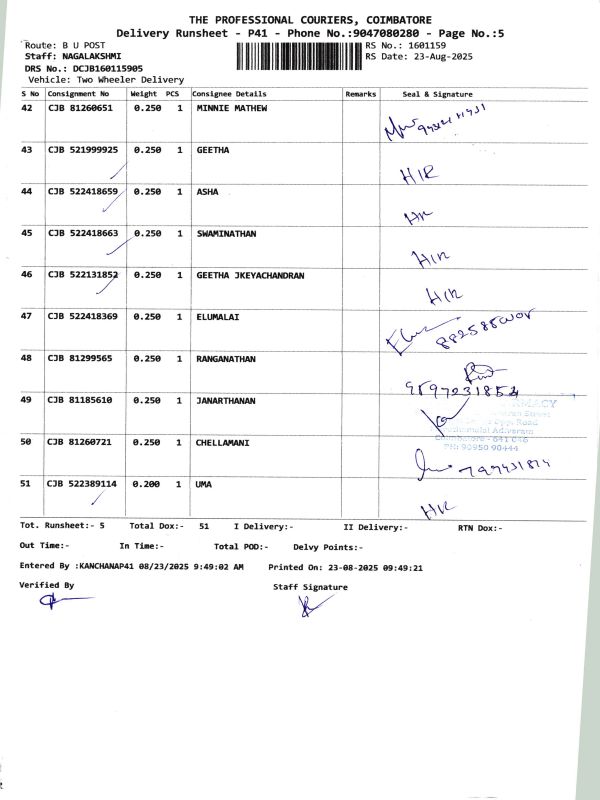 THE PROFESSIONAL COURIERS, COIMBATORE
Delivery Runsheet - P41 - Phone No.:9047080280 - Page No.:5
Route: B U POST RS No.: 1601159
Staff: NAGALAKSHMI RS Date: 23-Aug-2025
DRS No.: DCJB160115905
Vehicle: Two Wheeler Delivery
S No Consignment No Weight PCS Consignee Details Remarks Seal & Signature
42 CJB 81260651 0.250 1 MINNIE MATHEW
43 CJB 521999925 0.250 1 GEETHA
H/R
44 CJB 522418659 0.250 1 ASHA
H/R
45 CJB 522418663 0.250 1 SWAMINATHAN
H/R
46 CJB 522131852 0.250 1 GEETHA JKEYACHANDRAN
H/R
47 CJB 522418369 0.250 1 ELUMALAI
48 CJB 81299565 0.250 1 RANGANATHAN
49 CJB 81185610 0.250 1 JANARTHANAN
Road
Adivaram
Coimbatore - 641 046
PH: 90950 90444
50 CJB 81260721 0.250 1 CHELLAMANI
51 CJB 522389114 0.200 1 UMA
H/R
Tot. Runsheet:- 5 Total Dox:- 51 I Delivery:- II Delivery:- RTN Dox:-
Out Time:- In Time:- Total POD:- Delvy Points:-
Entered By :KANCHANAP41 08/23/2025 9:49:02 AM Printed On: 23-08-2025 09:49:21
Verified By Staff Signature